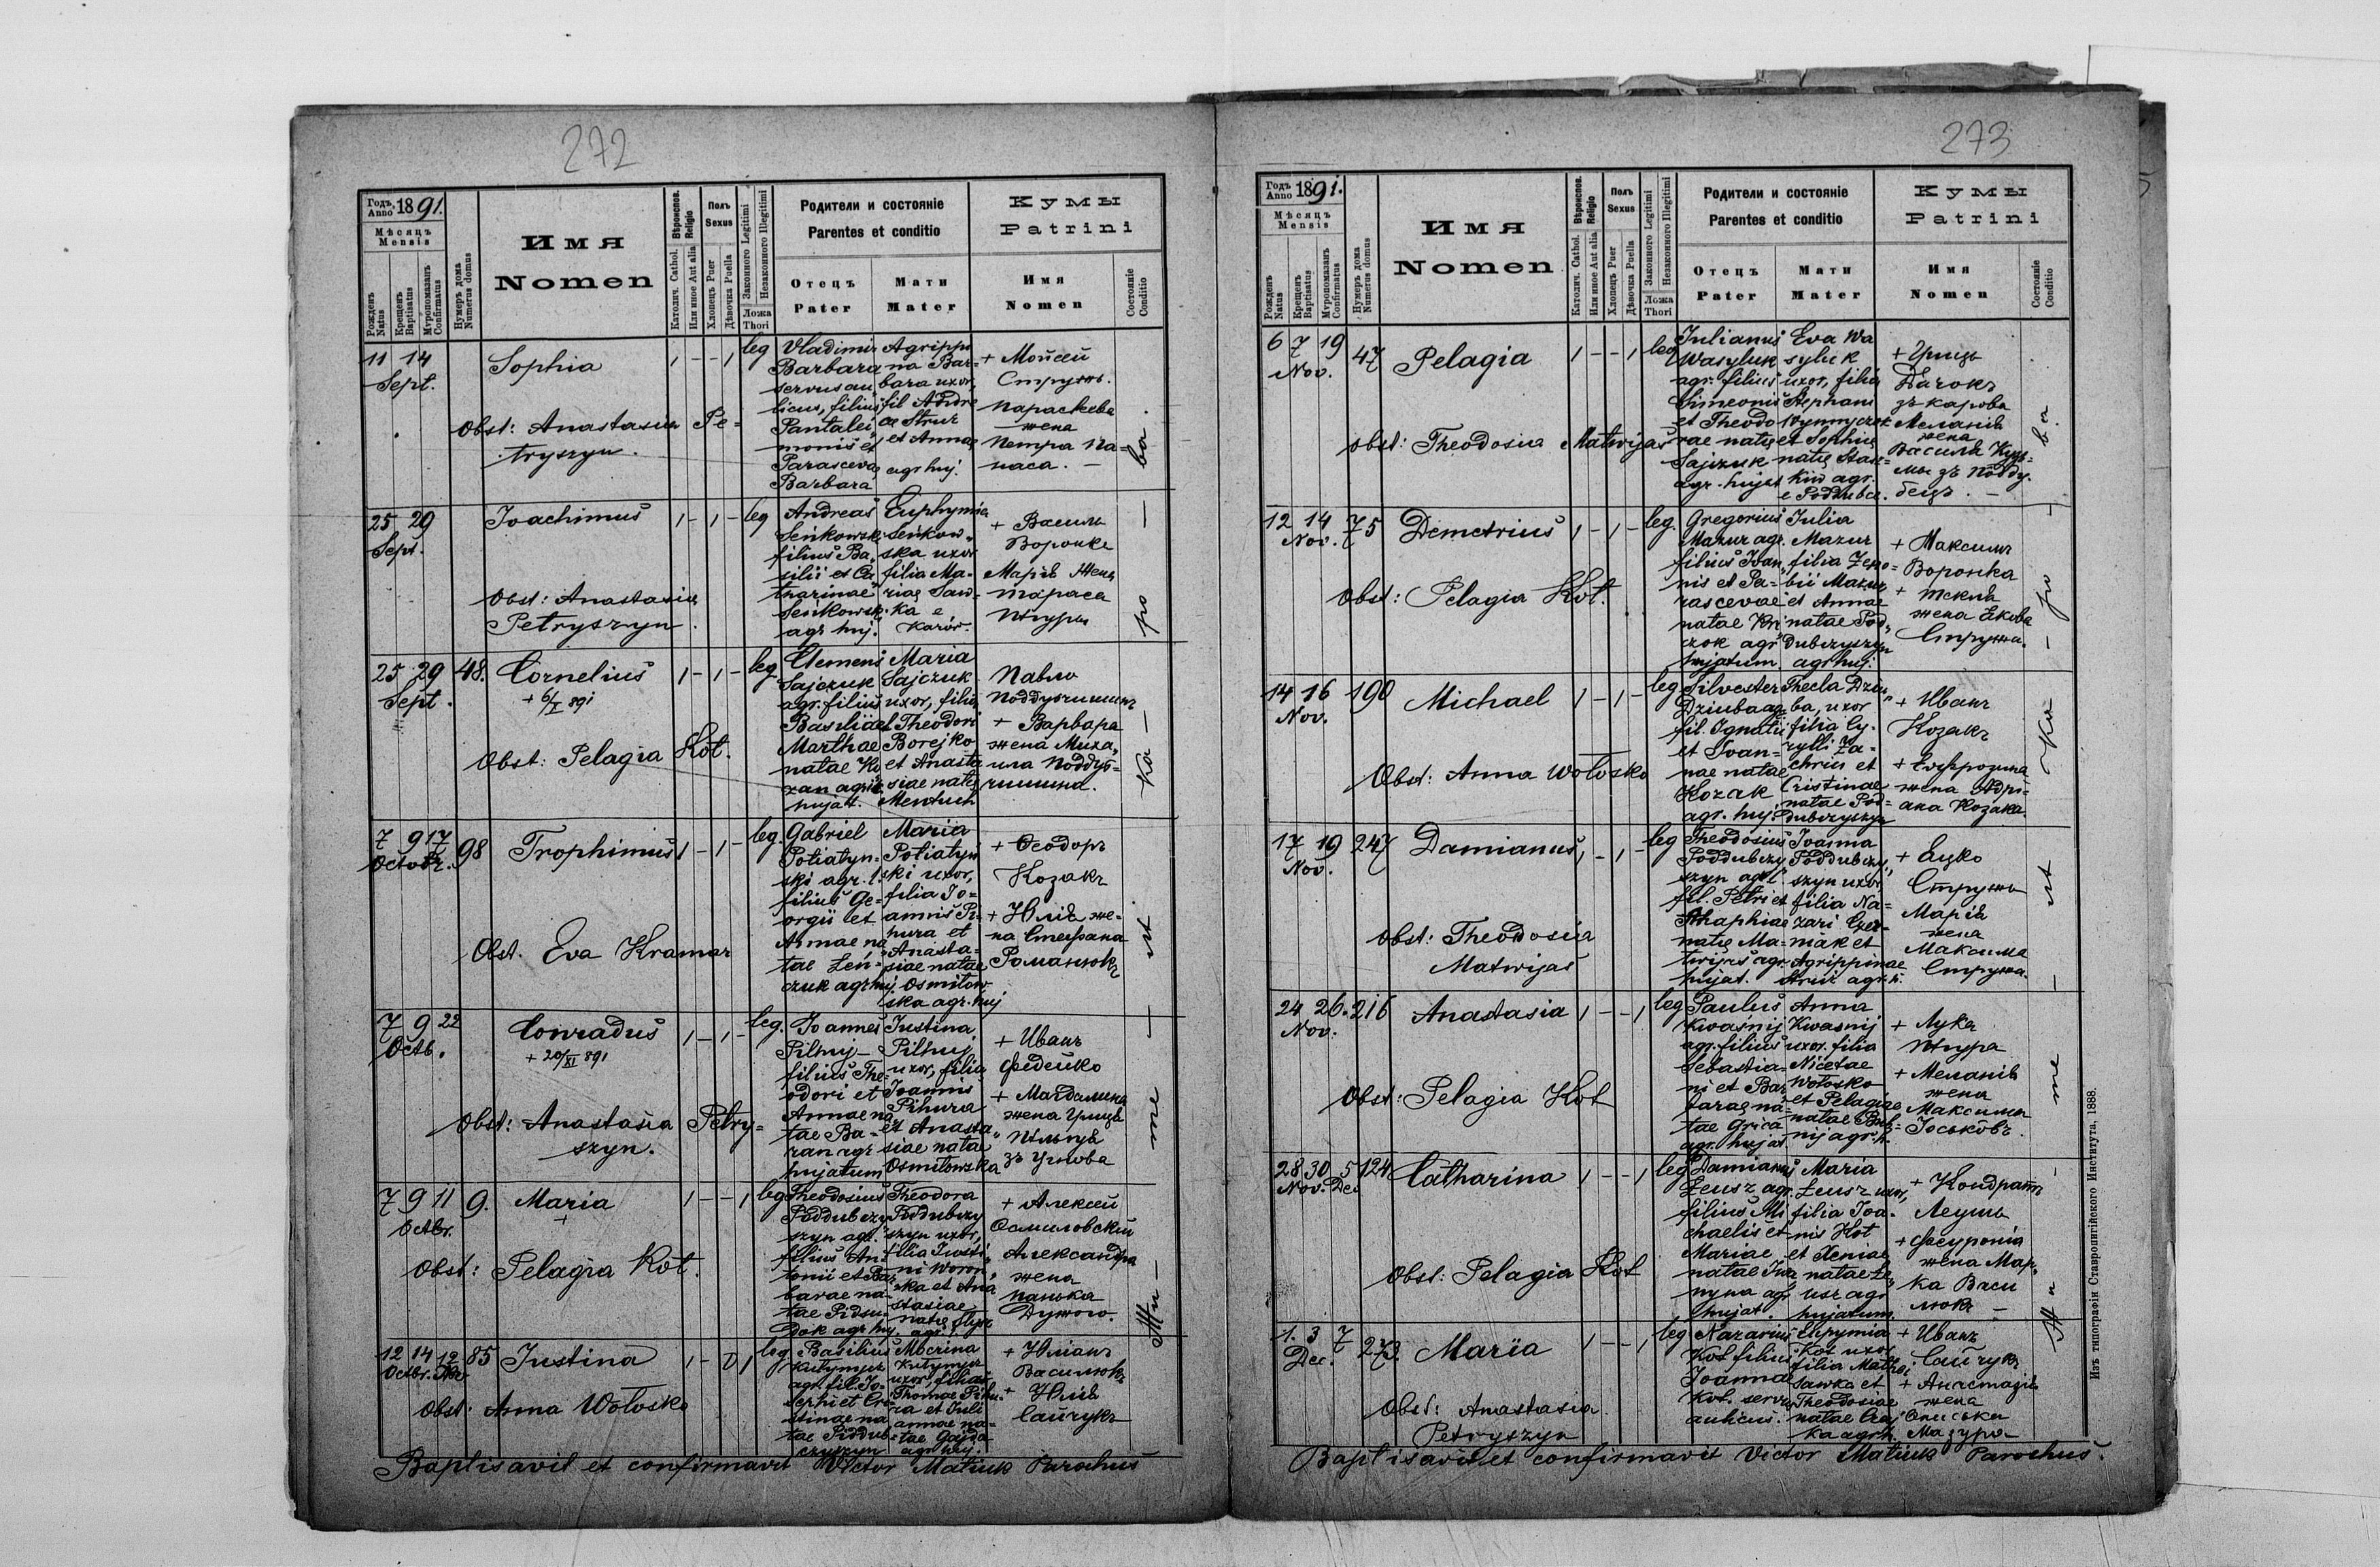 272
Годъ Anno 1891.
Мѣсяцъ Mensis
Рожденъ Natus
Крещенъ Baptisatus
Мѵропомазанъ Confirmatus
Нумеръ дома Numerus domus
Имя
Nomen
Вѣроиспов. Religio
Католич. Cathol.
Или иное Aut alia
Полъ Sexus
Хлопецъ Puer
Дѣвочка Puella
Законного Legitimi
Незаконного Illegitimi
Ложа Thori
Родители и состояніе
Parentes et conditio
Отецъ
Pater
Мати
Mater
Кумы
Patrini
Имя
Nomen
Состояніе Conditio
11 14 Sept.
Sophia
1 - - 1 leg
Obst: Anastasia Petryszyn.
Vladimir
Barbara
servus au
licus, filius
Pantalei
monis et
Parasceva
Barbara
Agrippi
na Bar=
bara uxor,
fil Andre
ae Struż
et Annae
agr huj.
+ Мойсей
Стружь.
Параскева
жена
Петра Па=
паса. -
25 29 Sept.
Joachimus
1 - 1 - leg
Obst: Anastasia
Petryszyn.
Andreas
Seńkowsk
filius Ba=
silii et Ca
tharinae
Seńkowsk
agr huj.
Euphymia
Seńkow=
ska uxor
filia Ma=
riae Saw=
ka e
Karów.
+ Василь
Воронка
Марія жена
Тараса
Пѣгуры
25 29 48. Sept.
Cornelius
+ 6/X 891
1 - 1 - leg
Obst: Pelagia Kot.
Clemens
Sajczuk
agr. filius
Basilii et
Marthae
natae Ko
zan agric
hujat.
Maria
Sajczuk
uxor, filia
Theodori
Borejko
et Anasta
siae natę
Павло
Поддубчишинъ
+ Варвара
жена Миха=
ила Поддуб=
чишина.
7 9 17 Octobr. 98
Trophimus
1 - 1 - leg.
Obst. Eva Kramar
Gabriel
Potiatyn=
ski agr. l.
filius Ge=
orgii et
Annae na
tae Łen=
czuk agr huj
Maria
Potiatyń
ski uxor,
filia Jo=
annis Pi=
hura et
Anasta=
siae natae
Osmiłow
ska agr. huj
+ Ѳеодоръ
Козакъ
+ Юлія же=
на Стефана
Романюкъ
7 9 22 Octb.
Conradus
+ 20/XI 891
1 - 1 - leg.
Obst: Anastasia Petry=
szyn.
Joannes
Pilnij
filius The=
odori et
Annae na
tae Ba=
ran agr
hujatum
Justina
Pilnij
uxor, filia
Joannis
Pihura
et Anasta
siae natae
Osmiłowska
+ Иванъ
Федейко
+ Магдалина
жена Гриця
зъ Угнова
7 9 11 9. Octbr.
Maria
+
1 - - 1 leg
Obst: Pelagia Kot.
Theodosius
Poddubczy
szyn agr.
filius An=
tonii et Bar
barae na=
tae Pidsu
dok agr huj.
Theodora
Poddubczy
szyn uxor,
filia Justi
ni Woron
ka et Ana
stasiae
+ Алексей
Осмиловскій
Александра
жена
Панька
Дужого.
12 14 12 85 Octbr. Nov
Justina
1 - 0 1 leg
Obst: Anna Wołosko
Basilius
Kutymyr
agr. fil. Jo=
sephi et Cri
stinae na
tae Piddub=
czyszyn
Macrina
Kutymyr
uxor, filia
Thomae Pihu
ra et Juli
annae na=
tae Gajda
agr huj.
+ Юліанъ
Василюкъ
+ Юлія
Сайчукъ
Жители - те - ст - ка - ро - ва.
Baptisavit et confirmavit Victor Matiuk Parochus
273
Годъ Anno 1891.
Мѣсяцъ Mensis
Рожденъ Natus
Крещенъ Baptisatus
Мѵропомазанъ Confirmatus
Нумеръ дома Numerus domus
Имя
Nomen
Вѣроиспов. Religio
Католич. Cathol.
Или иное Aut alia
Полъ Sexus
Хлопецъ Puer
Дѣвочка Puella
Законного Legitimi
Незаконного Illegitimi
Ложа Thori
Родители и состояніе
Parentes et conditio
Отецъ
Pater
Мати
Mater
Кумы
Patrini
Имя
Nomen
Состояніе Conditio
6 7 19 47 Nov.
Pelagia
1 - - 1 leg
Obst: Theodosia Matwijas
Julianus
Wasyluk
agr. filius
Simeonis
et Theodo
rae natę
Sajczuk
agr. hujat
Eva Wa
syluk
uxor, filia
Stephani
et Sophię
natę Stas=
kiw agr.
e Poddubce.
+ Грицъ
Дачокъ
зъ Карова
Меланія
жена
Василя Кузь=
мы зъ Подду.
бецъ. -
12 14 75 Nov.
Demetrius
1 - 1 - leg.
Obst: Pelagia Kot.
Gregorius
Mazur agr.
filius Joan
nis et Pa=
rascevae
natae Kri
czok agr
hujatum
Julia
Mazur
filia Zeno=
bii Mazur
et Annae
natae Pod=
dubczyszyn
agr huj.
+ Максимъ
Воронка
+ Текля
жена Якова
Стружа.
14 16 190 Nov.
Michael
1 - 1 - leg
Obst: Anna Wołosko
Silvester
Dziuba agr
fil. Ignatii
et Joan=
nae natae
Kozak
agr. huj
Thecla Dziu
ba, uxor
filia Cy=
rylli Za=
chrius et
Cristinae
natae Pod=
dubczyszyn
+ Иванъ
Козакъ
+ Евфрозина
жена Адрі=
ана Козака.
17 19 247 Nov.
Damianus
1 - 1 - leg
Obst: Theodosia
Matwijas
Theodosius
Poddubczy
szyn agr.
fil. Petri et
natę Ma=
twijas agr.
hujat.
Joanna
Poddubczy
szyn uxor,
filia Na=
zari Czer=
niak et
Agrippinae
Struż agr. h.
+ Яцко
Стружь
Марія
жена
Максима
Стружа.
24 26. 216 Nov.
Anastasia
1 - - 1 leg
Obst: Pelagia Kot
Paulus
Kwasnij
agr. filius
Sebastia=
ni et Bar
barae na=
tae Grica
agr. hujat.
Anna
Kwasnij
uxor. filia
Nicetae
Wołosko
et Pelagiae
+ Лука
Пѣгура
+ Меланія
жена
Максима
Юськовъ.
28 30 5 124 Nov. Dec.
Catharina
1 - - 1 leg
Obst: Pelagia Kot
Damianus
Łeusz agr.
filius Mi
chaelis et
Mariae
natae Iwa
nyna agr
hujat.
Maria
Łeusz uxor,
filia Joa=
nnis Kot
et Xeniae
natae Łe=
usz agr
hujatum.
+ Кондратъ
Леушъ
+ Февронія
жена Мар=
ка Васи
люкъ
1. 3 7 273. Dec.
Maria
1 - - 1 leg
Obst: Anastasia
Petryszyn
Nazarius
Kot filius
Joannae
Kot. servus
aulicus.
Euphymia
Kot uxor
filia Mathei
Sawka et
Theodosiae
natae Czaj
ka agr h.
+ Иванъ
Сайчукъ
+ Анастазія
жена
Ониська
Мазура
Жи - те - ст - ка - ро - ва.
Baptisavit et confirmavit Victor Matiuk Parochus.
Изъ типографіи Ставропигійского Института, 1888.